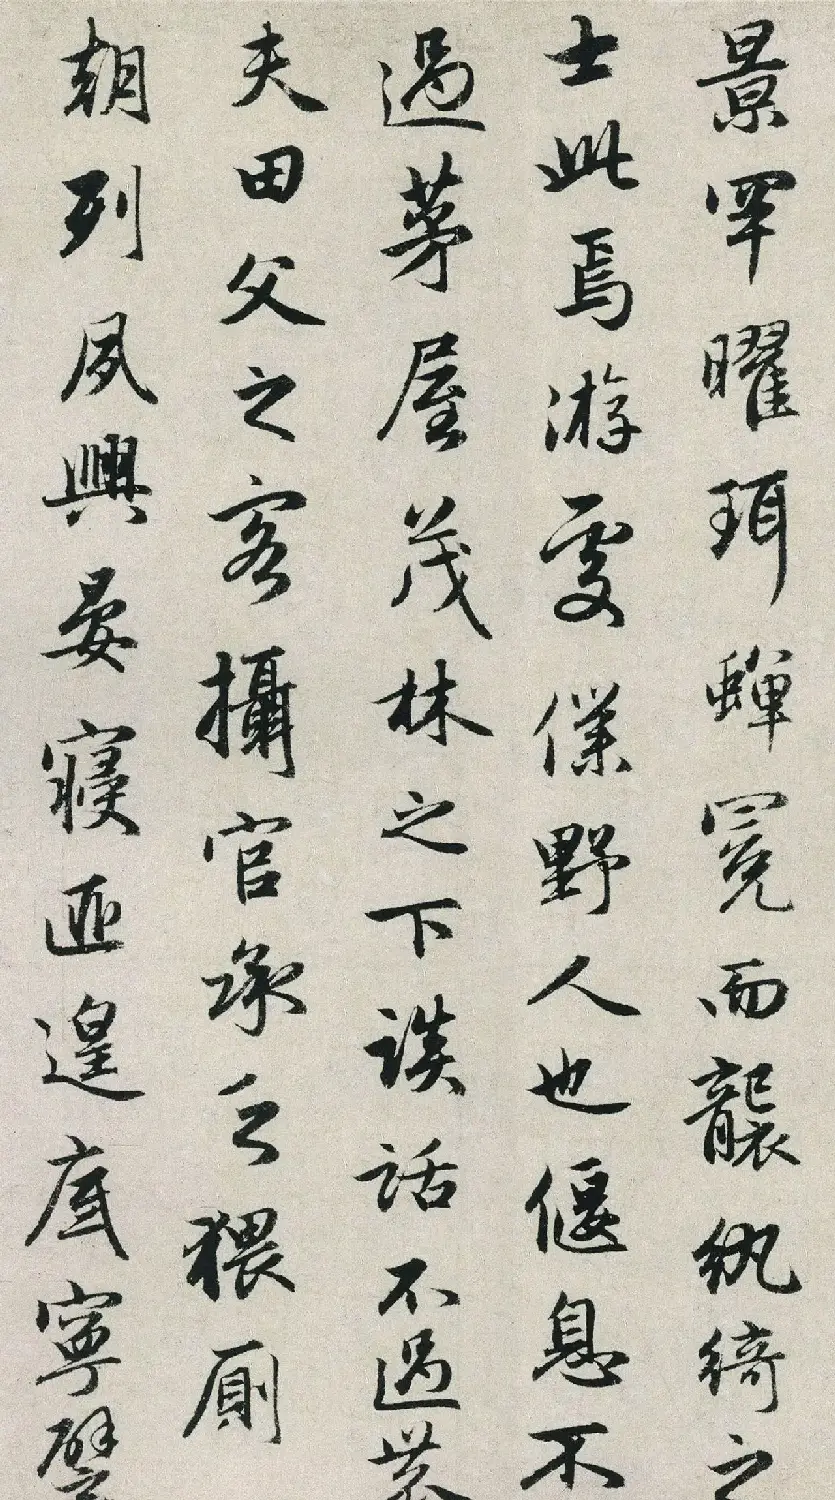 景罕曜珥蟬冕而襲紈綺之
士此焉游處僕野人也偃息不
過茅屋茂林之下談話不過農
夫田父之客攝官承乏猥厠
朝列夙興晏寢匪遑底寧譬